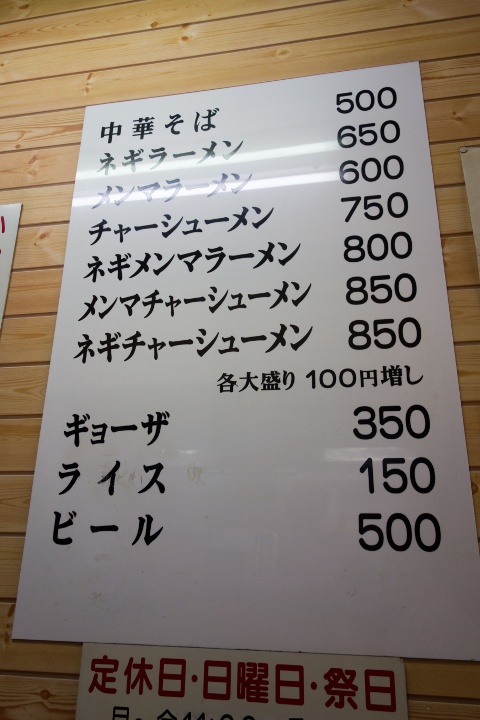 中華そば 500
ネギラーメン 650
メンマラーメン 600
チャーシューメン 750
ネギメンマラーメン 800
メンマチャーシューメン 850
ネギチャーシューメン 850
各大盛り 100円増し
ギョーザ 350
ライス 150
ビール 500
定休日・日曜日・祭日